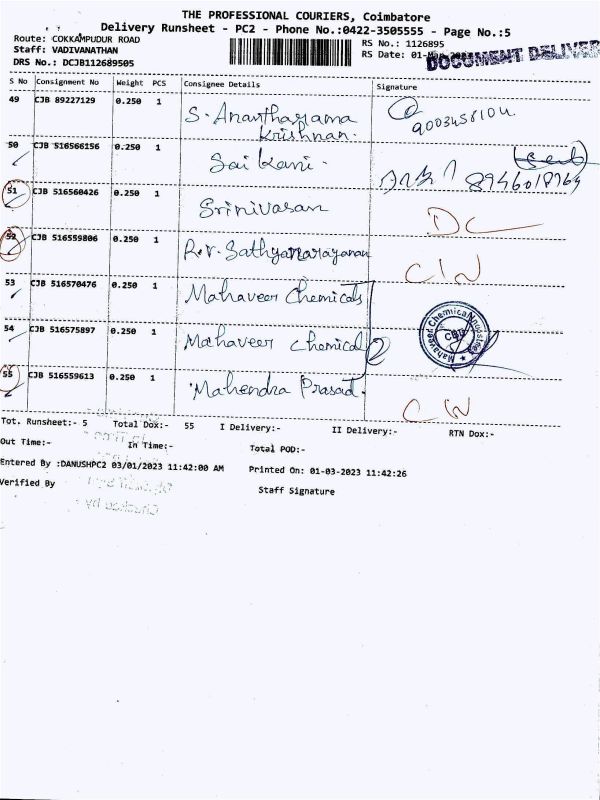 THE PROFESSIONAL COURIERS, Coimbatore
Delivery Runsheet - PC2 - Phone No.:0422-3505555 - Page No.:5
Route: COKKAMPUDUR ROAD
RS No.: 1126895
Staff: VADIVANATHAN
RS Date: 01-
DOCUMENT DELIVER
DRS No.: DCJB112689505
S No Consignment No Weight PCS Consignee Details Signature
49 CJB 89227129 0.250 1 S. Anantharama Krishnan.
50 CJB 516566156 0.250 1 Sai Kani.
51 CJB 516560426 0.250 1 Srinivasan DC
52 CJB 516559806 0.250 1 R.V. Sathyanarayanan
53 CJB 516570476 0.250 1 Mahaveer Chemicals
54 CJB 516575897 0.250 1 Mahaveer Chemical 2
55 CJB 516559613 0.250 1 Mahendra Prasad.
Tot. Runsheet:- 5 Total Dox:- 55 I Delivery:- II Delivery:- RTN Dox:-
Out Time:- In Time:- Total POD:-
Entered By :DANUSHPC2 03/01/2023 11:42:00 AM Printed On: 01-03-2023 11:42:26
Verified By Staff Signature